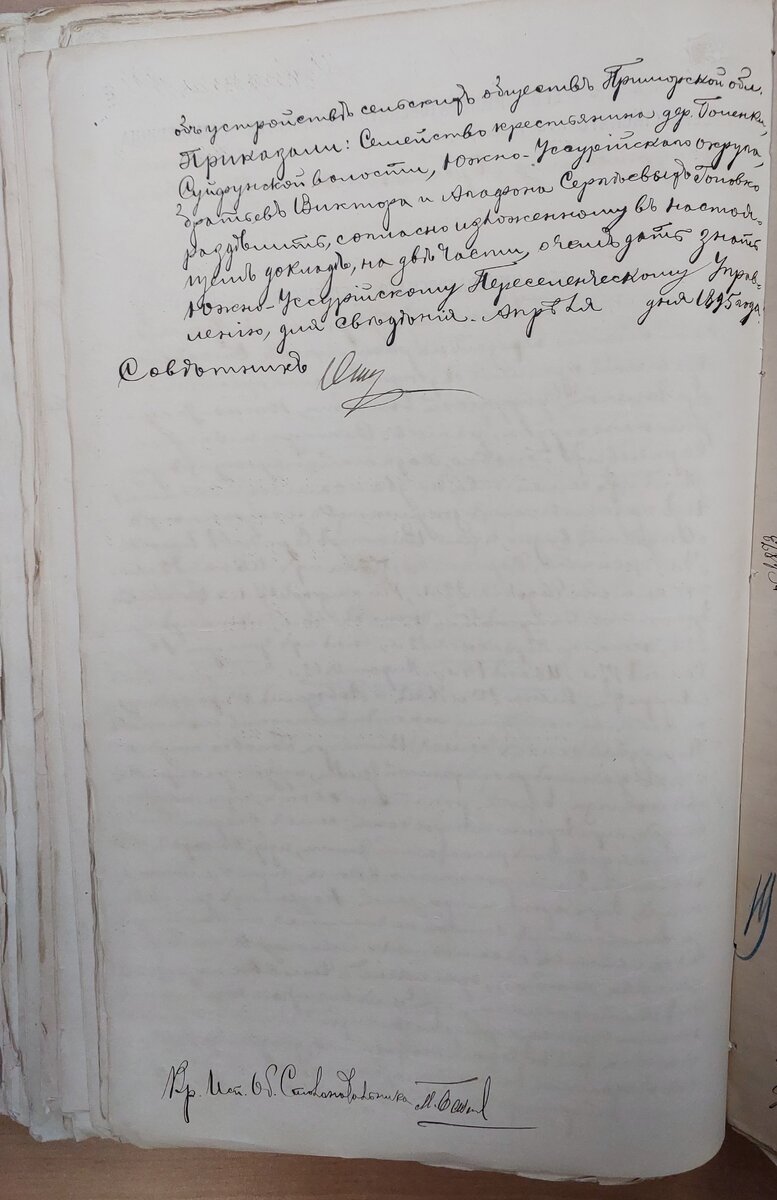 объ устройствѣ сельскихъ обществъ Приморской обл.
Приказали: Семейство крестьянина дер. Голенки,
Суйфунской волости, Южно-Уссурійскаго округа,
братьевъ Виктора и Агафона Сергѣевыхъ Головко
раздѣлить, согласно изложенному въ настоя-
щемъ докладѣ, на двѣ части, о чемъ дать знать
Южно-Уссурійскому Переселенческому Управ-
ленію, для свѣдѣнія. Апрѣля дня 1895 года.
Совѣтникъ
Вр. Исп. Об. Столоначальника
19